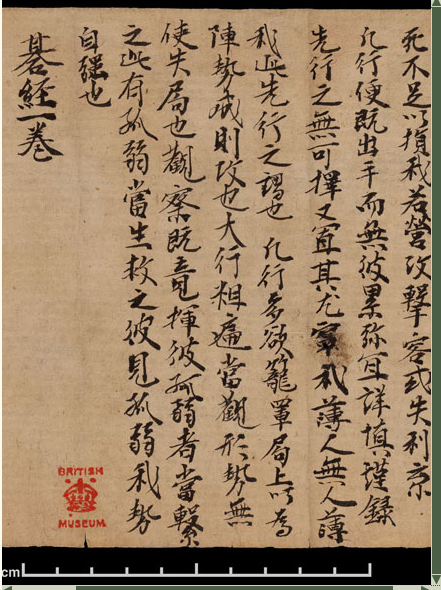 死不足以損我若營攻擊容或失利
凡行便既出手而無彼累弥宜詳慎謹録
先行之無可擇又宜其尤寧我薄人無人薄
我此先行之謂也 凡行多欲籠罩局上以為
陣勢成則攻也大行粗遍當觀形勢無
使失局也觀察既竟揮彼孤弱者當擊
之此有孤弱當生救之彼見孤弱我勢
自強也
碁經一卷
BRITISH
MUSEUM
cm